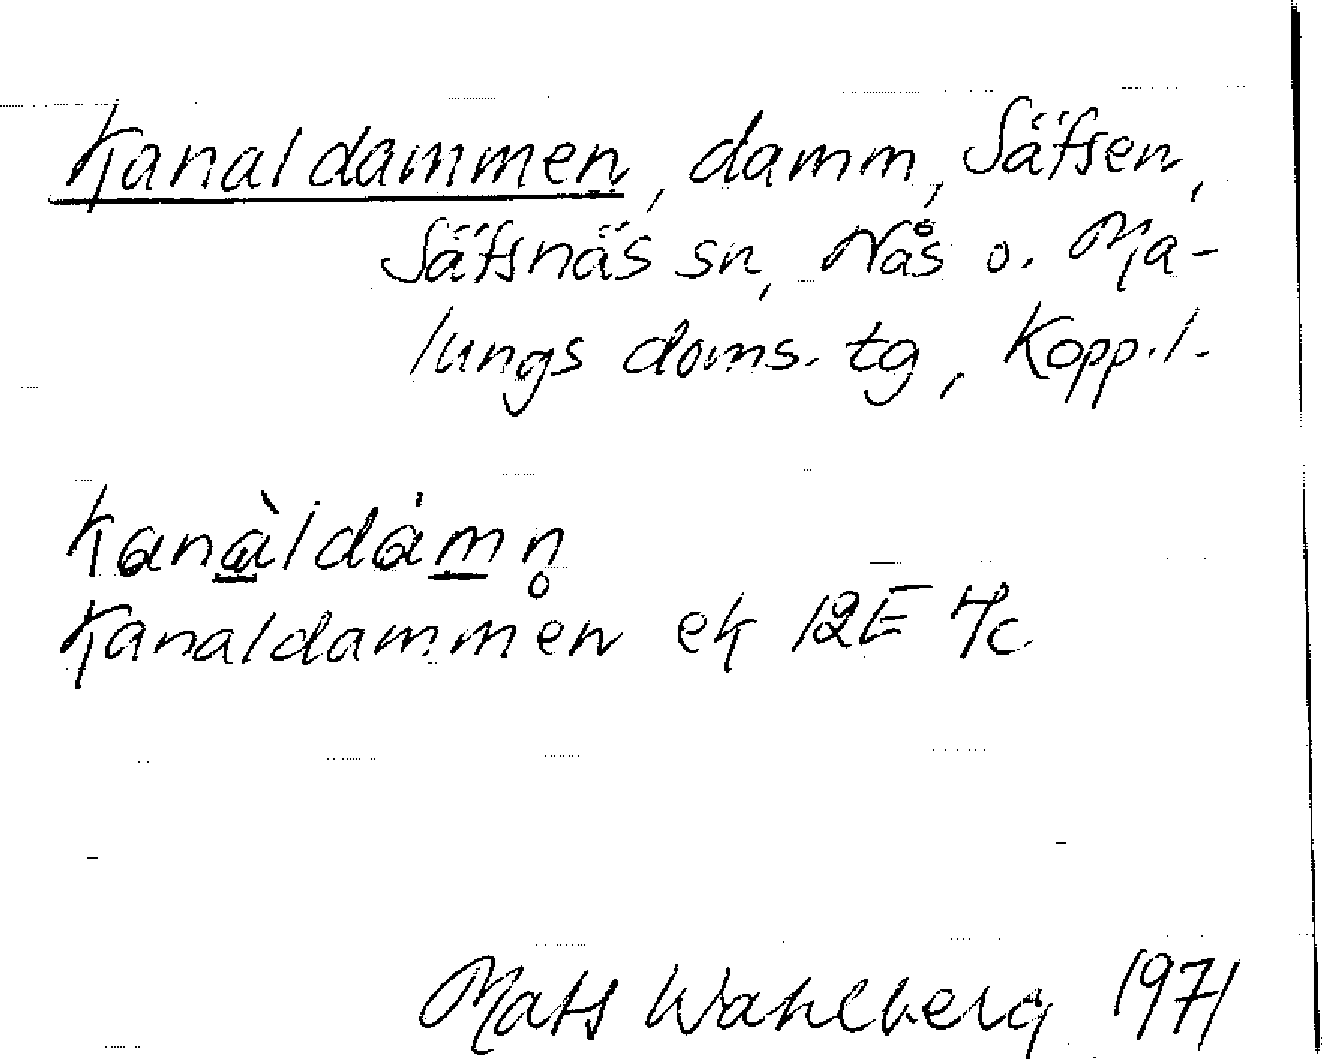 Kanaldammen, damm, Säfsen,
Säfsnäs sn, Nås o. Ma-
lungs doms. tg, Kopp. l.
kanàldámn̥
Kanaldammen ek 12E 4c
Mats Wahlberg 1971